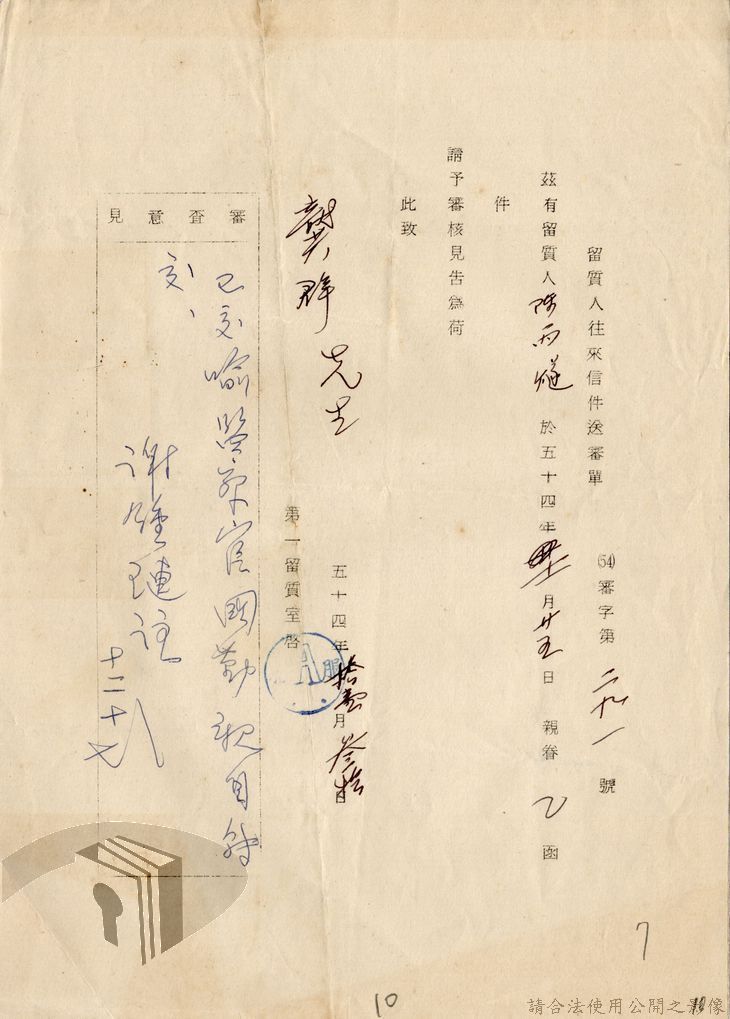 留質人往來信件送審單
(54)審字第二九一號
茲有留質人陳雨 於五十四年 月廿五日親眷 函
件
請予審核見告為荷
此致
龔群先生
五十四年拾壹月叁拾日
第一留質室啓
A 服
審查意見
已交喻監察官國勤親自轉
交、
謝 璉註
十二十七
7
10
請合法使用公開之影像